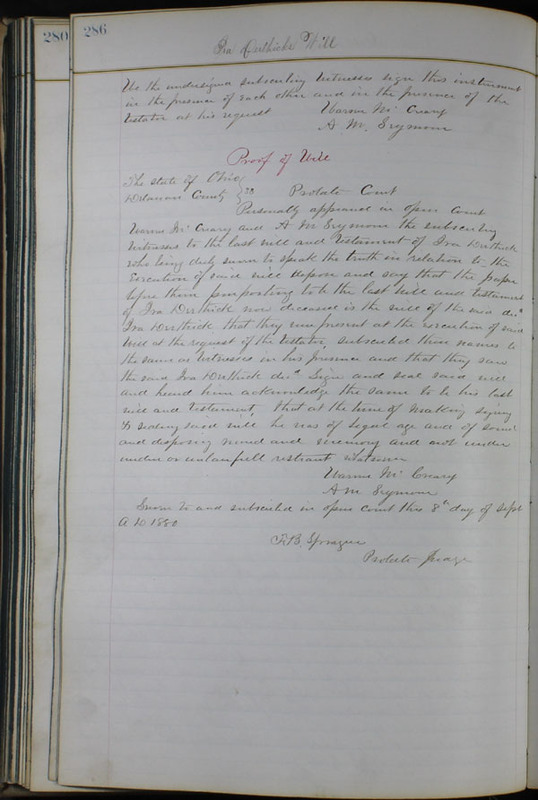 280 286
Ira Derthicks Will
We the undersigned subscribing Witnesses sign this instrument
in the presence of each other and in the presence of the
testator at his request Warren McCreary
A. M. Seymour
Proof of Will
The State of Ohio
Delaware County } SS Probate Court
Personally appeared in open Court
Warren McCreary and A M Seymour the subscribing
witnesses to the last will and Testament of Ira Derthick
who being duly sworn to speak the truth in relation to the
Execution of said will depose and say that the paper
before them purporting to be the last Will and testament
of Ira Derthick now deceased is the will of the said decd
Ira Derthick that they were present at the execution of said
Will at the request of the testator, subscribed their names to
the same as Witnesses in his presence and that they saw
the said Ira Derthick decd Sign and seal said will
and heard him acknowledge the same to be his last
will and Testament, that at the time of making signing
& sealing said will he was of legal age and of sound
and disposing mind and memory and not under
undue or unlawfull restraint whatsoever
Warren McCreary
A M Seymour
Sworn to and subscribed in open court this 8th day of Sept
A D 1880
F. B. Sprague
Probate Judge